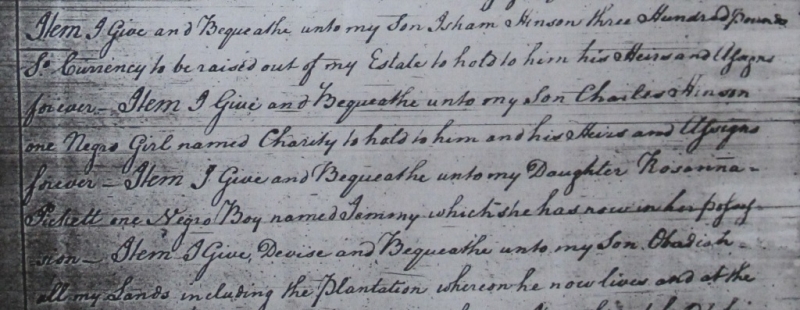 Item I Give and Bequeathe unto my Son Isham Hinson three Hundred pounds
So Currency to be raised out of my Estate to hold to him his Heirs and Assigns
forever - Item I Give and Bequeathe unto my Son Charles Hinson
one Negro Girl named Charity to hold to him and his Heirs and Assigns
forever - Item I Give and Bequeathe unto my Daughter Rosanna -
Pickett one Negro Boy named Jemmy which she has now in her posses-
sion - Item I Give, Devise and Bequeathe unto my Son Obadiah -
all my Lands including the Plantation whereon he now lives and at the